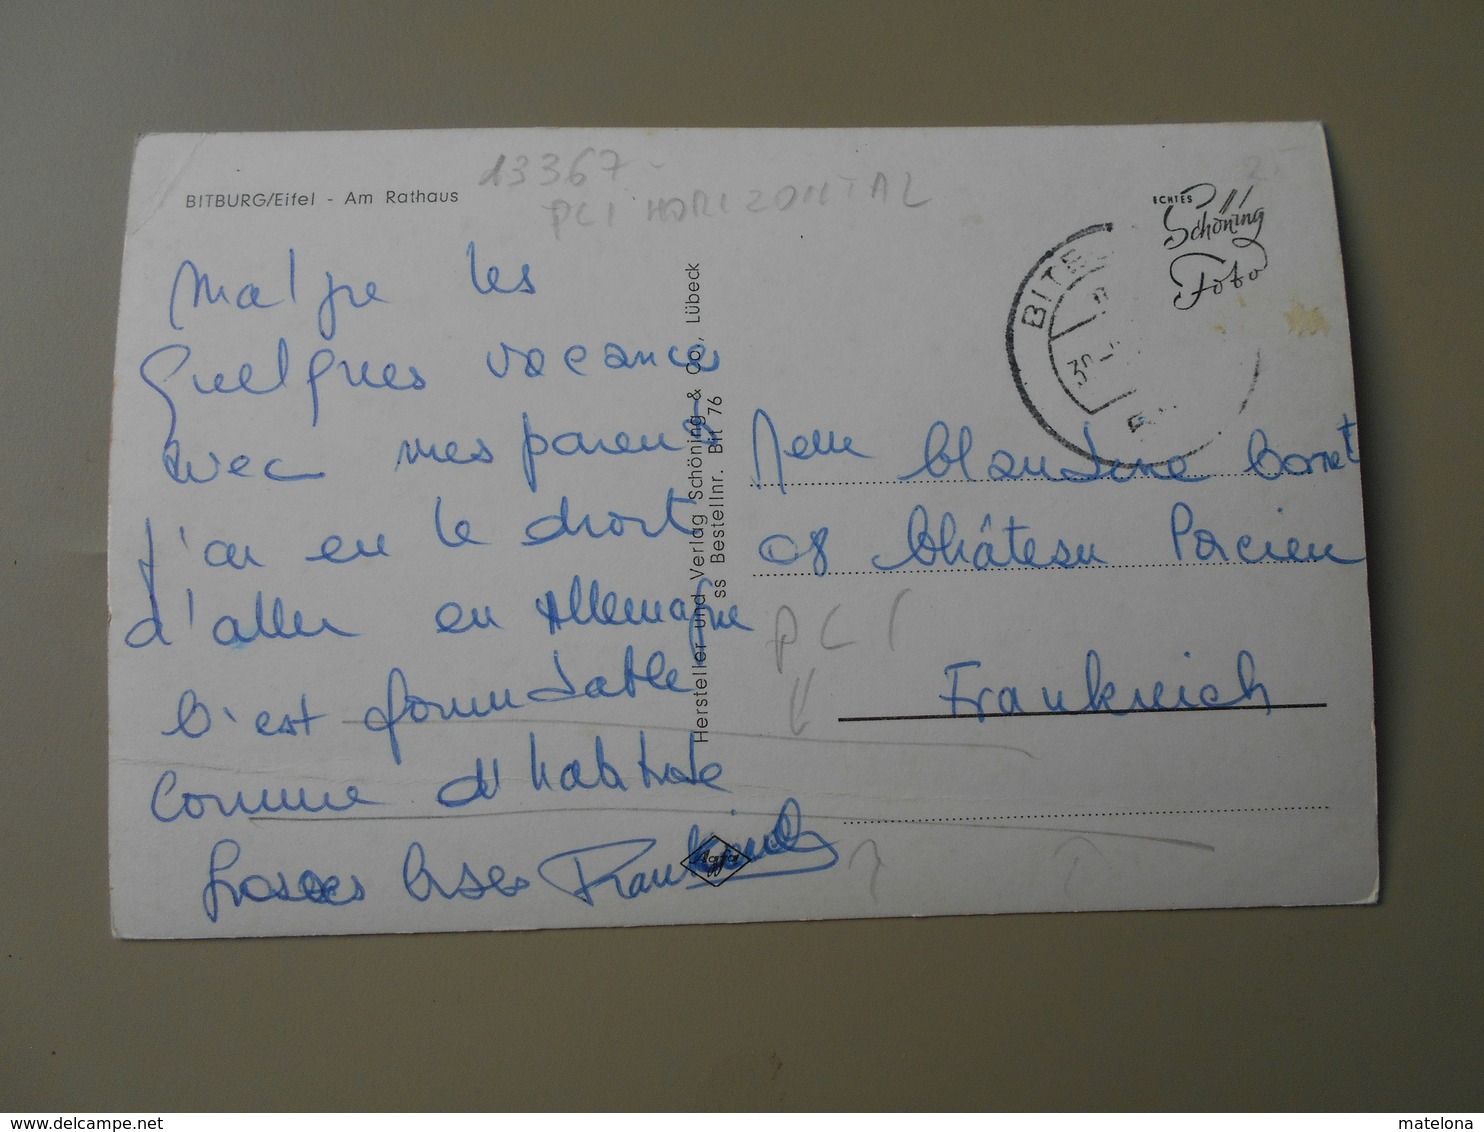 BITBURG/Eifel - Am Rathaus
13367 -
PCI HORIZONTAL
25
ECHTES
Schöning
Foto
BITB
30
Malgre les
Quelques vacances
avec mes parents
j'ai eu le droit
d'aller en Allemagne
C'est formidable
Comme d'habitude
Grosses bises
Hersteller und Verlag Schöning & Co., Lübeck
ss Bestellnr. Bit 76
Melle Blandine
08 Château Porcien
Frankreich
PCI
Agfa
matelona